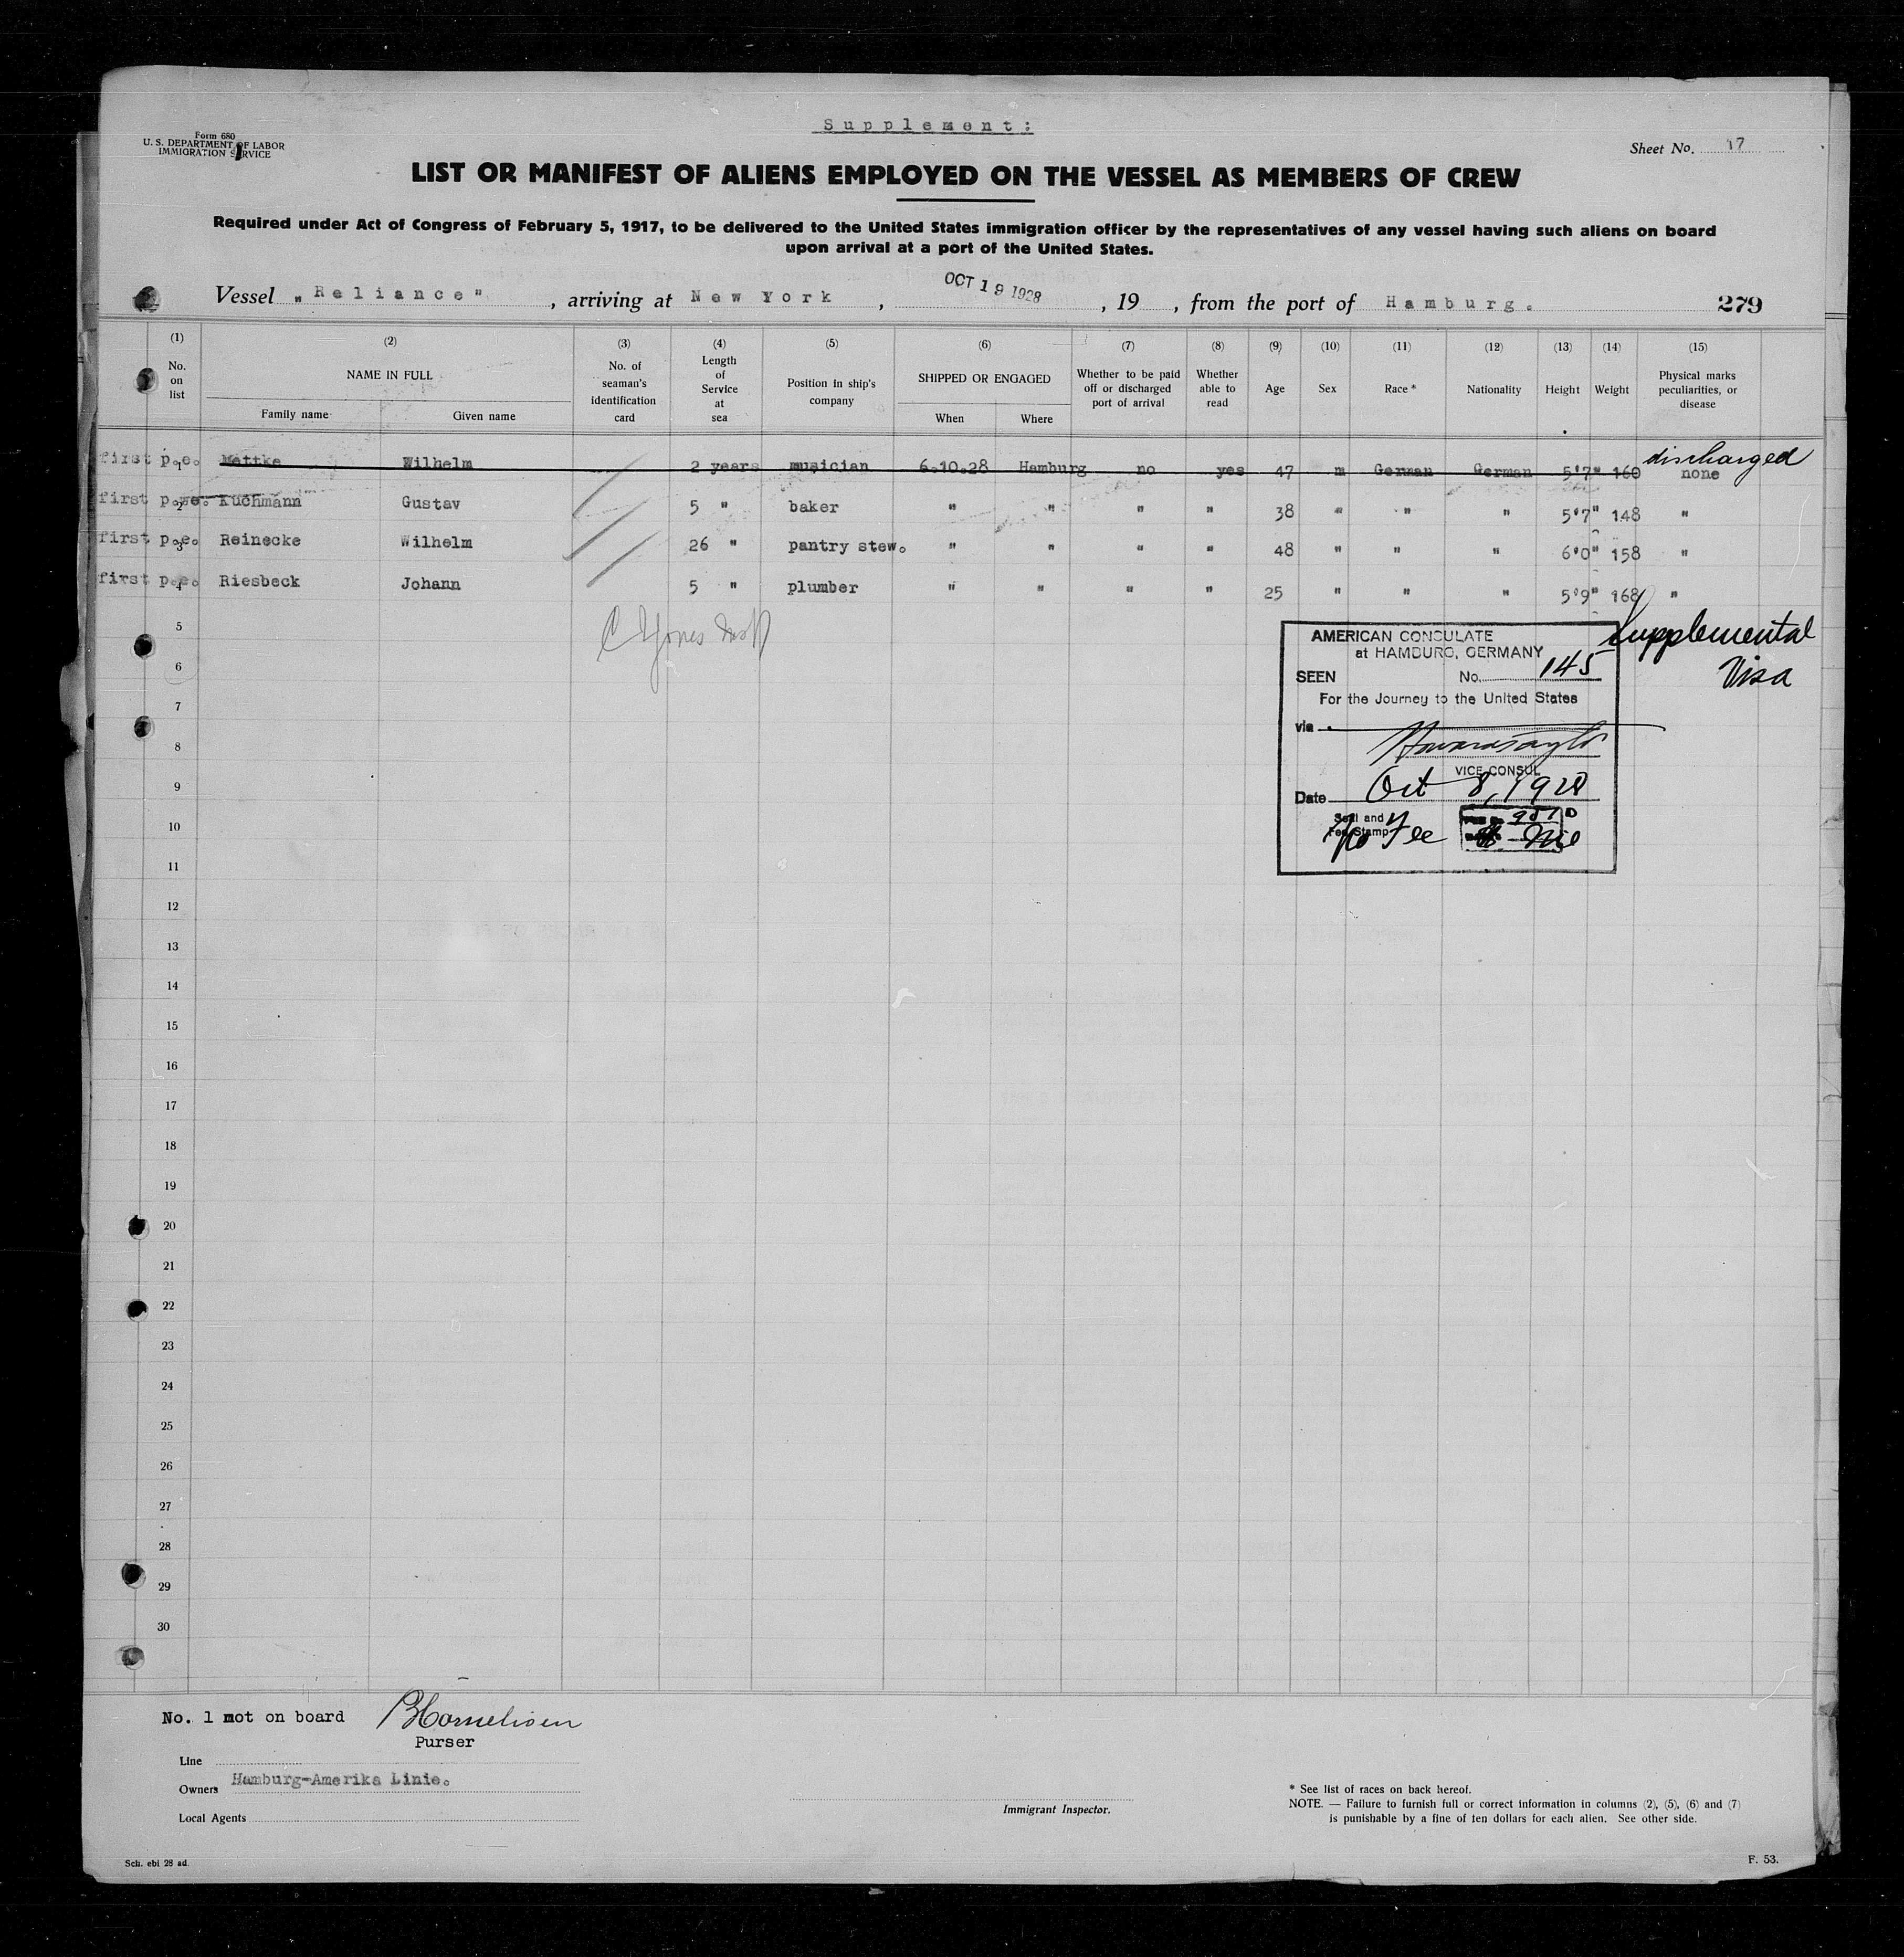 Supplement:
Form 680
U. S. DEPARTMENT OF LABOR
IMMIGRATION SERVICE
Sheet No. 17
LIST OR MANIFEST OF ALIENS EMPLOYED ON THE VESSEL AS MEMBERS OF CREW
Required under Act of Congress of February 5, 1917, to be delivered to the United States immigration officer by the representatives of any vessel having such aliens on board
upon arrival at a port of the United States.
Vessel „Reliance", arriving at New York, OCT 19 1928, 19 , from the port of Hamburg. 279
(1) (2) (3) (4) (5) (6) (7) (8) (9) (10) (11) (12) (13) (14) (15)
No. on list
NAME IN FULL
Family name Given name
No. of seaman's identification card
Length of Service at sea
Position in ship's company
SHIPPED OR ENGAGED
When Where
Whether to be paid off or discharged port of arrival
Whether able to read
Age Sex Race * Nationality Height Weight
Physical marks peculiarities, or disease
discharged
first p.e. 1 Mettke Wilhelm 2 years musician 6.10.28 Hamburg no yes 47 m German German 5'7" 160 none
first p.e. 2 Kuchmann Gustav 5 " baker " " " " 38 " " " 5'7" 148 "
first p.e. 3 Reinecke Wilhelm 26 " pantry stew. " " " " 48 " " " 6'0" 158 "
first p.e. 4 Riesbeck Johann 5 " plumber " " " " 25 " " " 5'9" 168 "
5
6
7
8
9
10
11
12
13
14
15
16
17
18
19
20
21
22
23
24
25
26
27
28
29
30
Supplemental
Visa
AMERICAN CONSULATE
at HAMBURG, GERMANY
SEEN No. 145
For the Journey to the United States
via
VICE CONSUL
Date Oct 8, 1928
Seal and
Fee Stamp
No Fee
No. 1 not on board
Purser
Line
Owners Hamburg-Amerika Linie.
Local Agents
Immigrant Inspector.
* See list of races on back hereof.
NOTE. — Failure to furnish full or correct information in columns (2), (5), (6) and (7)
is punishable by a fine of ten dollars for each alien. See other side.
Sch. ebi 28 ad.
F. 53.